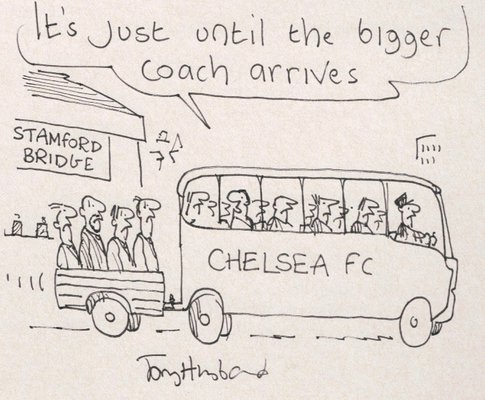 It's just until the bigger
coach arrives
STAMFORD
BRIDGE
CHELSEA FC
Tony Husband